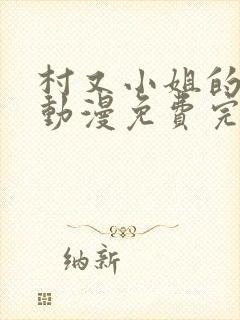 村又小姐的
動漫免費完
纳新